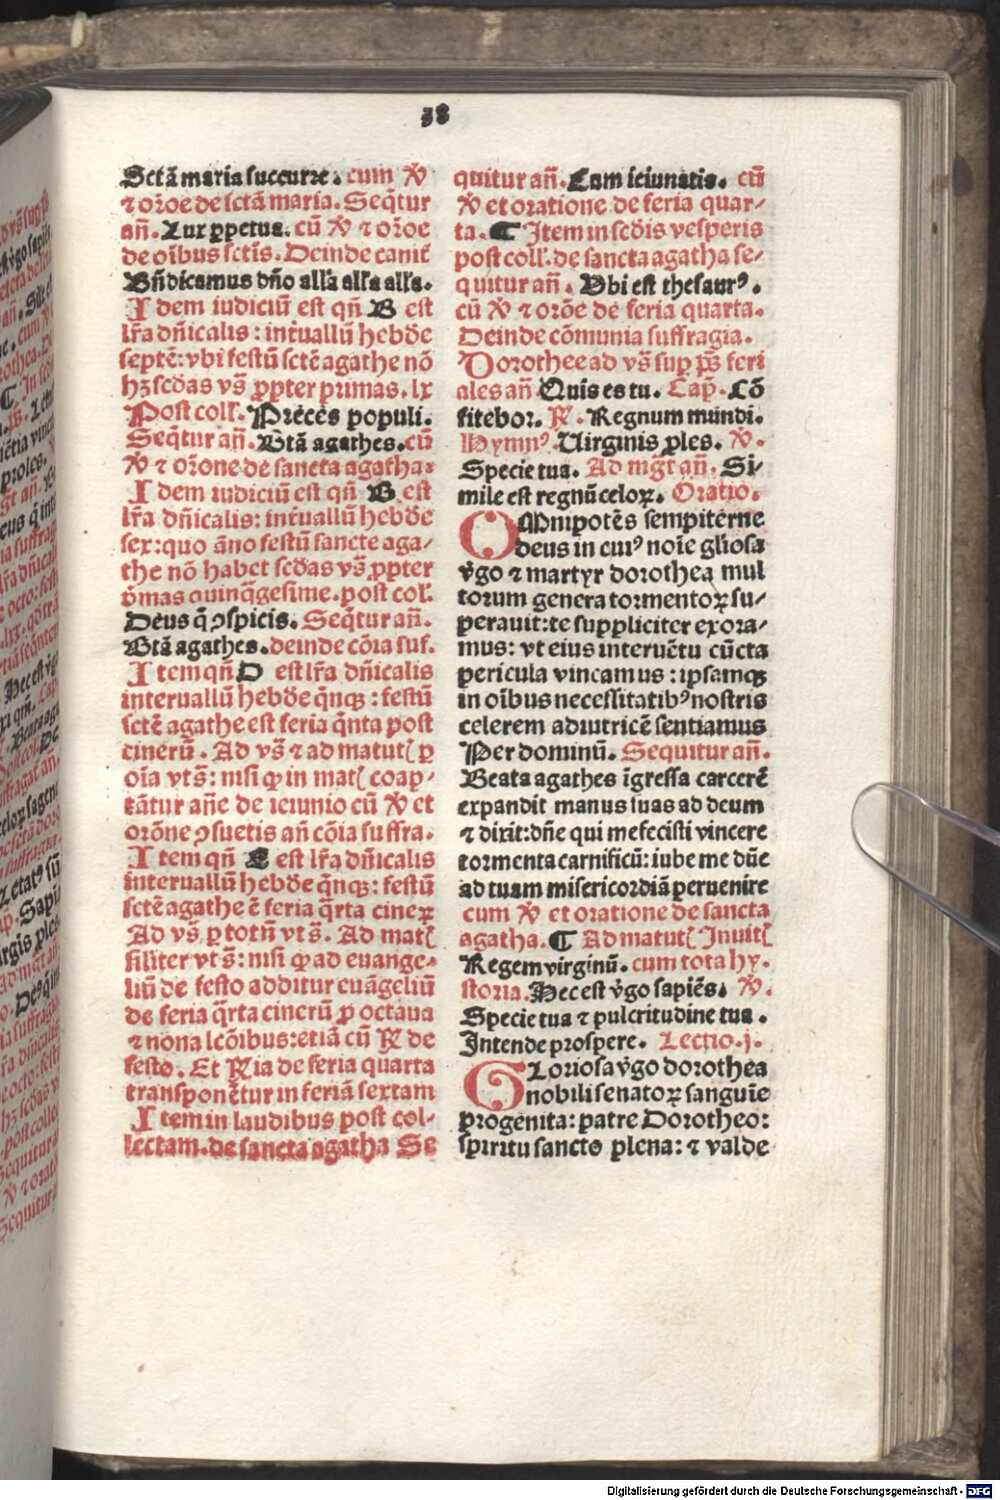 38
Sctã maria succurre. cum ℣
⁊ orõe de sctã maria. Seq̃tur
añ. Lux ꝑpetua. cũ ℣ ⁊ orõe
de oĩbus sctĩs. Deinde canit᷑
Bñdicamus dño all'a all'a all'a.
Idem iudiciũ est qñ B est
lr̃a dñicalis: int᷑uallũ hebde
septẽ: vbi festũ sctẽ agathe nõ
hꝫ scđas vs̃ ꝓpter primas. lx
Post coll'. Preces populi.
Seq̃tur añ. Btã agathes. cũ
℣ ⁊ orõne de sancta agatha:
Idem iudiciũ est qñ B est
lr̃a dñicalis: int᷑uallũ hebde
sex: quo ãno festũ sancte aga⸗
the nõ habet scđas vs̃ ꝓpter
p̃mas quinq̃gesime. post col'.
Deus q̃ ꝯspicis. Seq̃tur añ.
Btã agathes. deinde cõia suf.
Item qñ D est lr̃a dñicalis
interuallũ hebde q̃nqꝫ: festũ
sctẽ agathe est feria q̃nta post
cinerũ. Ad vs̃ ⁊ ad matutĩ ꝓ
oĩa vt s̃: nisi ꝙ in matĩ coap⸗
tãtur añe de ieiunio cũ ℣ et
orõne ꝯsuetis añ cõia suffra.
Item qñ E est lr̃a dñicalis
interuallũ hebde q̃nqꝫ: festũ
sctẽ agathe ẽ feria q̃rta cineꝝ
Ad vs̃ ꝑ totũ vt s̃. Ad matĩ
siliter vt s̃: nisi ꝙ ad euange⸗
liũ de festo additur euãgeliũ
de feria q̃rta cinerũ ꝓ octaua
⁊ nona lcõibus: etiã cũ ℟ de
festo. Et ℟ia de feria quarta
transponẽtur in feriã sextam
Item in laudibus post col⸗
lectam. de sancta agatha Se
quitur añ. Cum ieiunatis. cũ
℣ et oratione de feria quar⸗
ta. ¶ Item in scđis vesperis
post coll'. de sancta agatha se⸗
quitur añ. Vbi est thesaurꝰ.
cũ ℣ ⁊ orõe de feria quarta.
Deinde cõmunia suffragia.
Dorothee ad vs̃ suꝑ p̃s feri
ales añ Quis es tu. Cap̃. Cõ
fitebor. ℟. Regnum mundi.
Hymnꝰ. Uirginis ꝓles. ℣.
Specie tua. Ad mg̃t añ. Si⸗
mile est regnũ celoꝝ. Oratio.
OMnipotẽs sempiterne
deus in cuiꝰ noĩe gl'iosa
v̔go ⁊ martyr dorothea mul
torum genera tormentoꝝ su⸗
perauit: te suppliciter exora⸗
mus: vt eius interuẽtu cũcta
pericula vincamus: ipsamqꝫ
in oĩbus necessitatibꝰ nostris
celerem adiutricẽ sentiamus
Per dominũ. Sequitur añ.
Beata agathes ĩgressa carcerẽ
expandit manus suas ad deum
⁊ dixit: dñe qui me fecisti vincere
tormenta carnificũ: iube me dñe
ad tuam misericordiã peruenire
cum ℣ et oratione de sancta
agatha. ¶ Ad matutĩ Inuitĩ
Regem virginũ. cum tota hy⸗
storia. Hec est v̔go sapiẽs. ℣.
Specie tua ⁊ pulcritudine tua.
Intende prospere. Lectio. j.
GLoriosa v̔go dorothea
nobili senatoꝝ sanguĩe
progenita: patre Dorotheo:
spiritu sancto plena: ⁊ valde
Digitalisierung gefördert durch die Deutsche Forschungsgemeinschaft - DFG